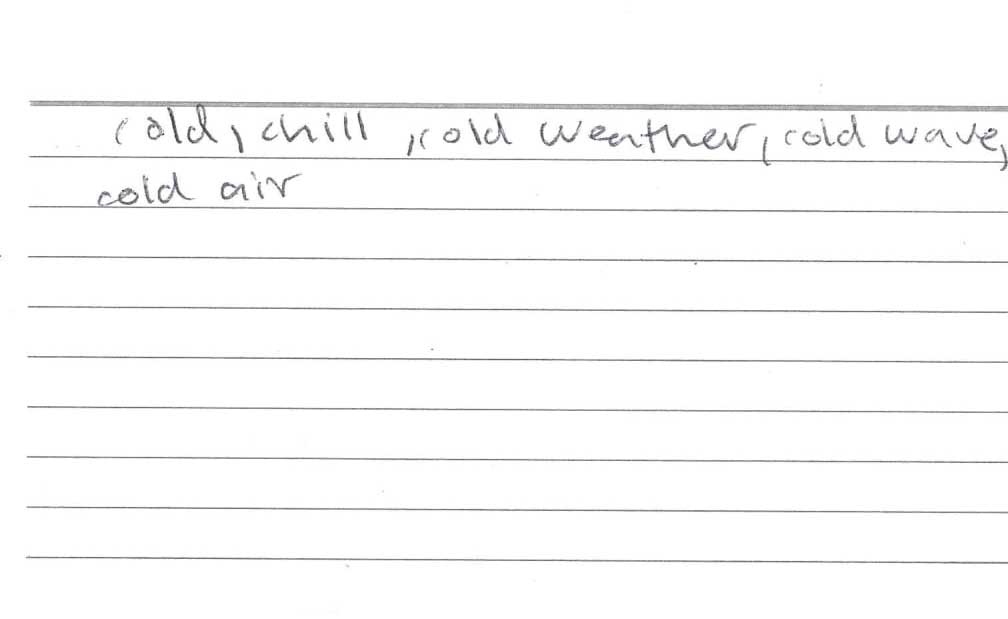 cold, chill, cold weather, cold wave,
cold air